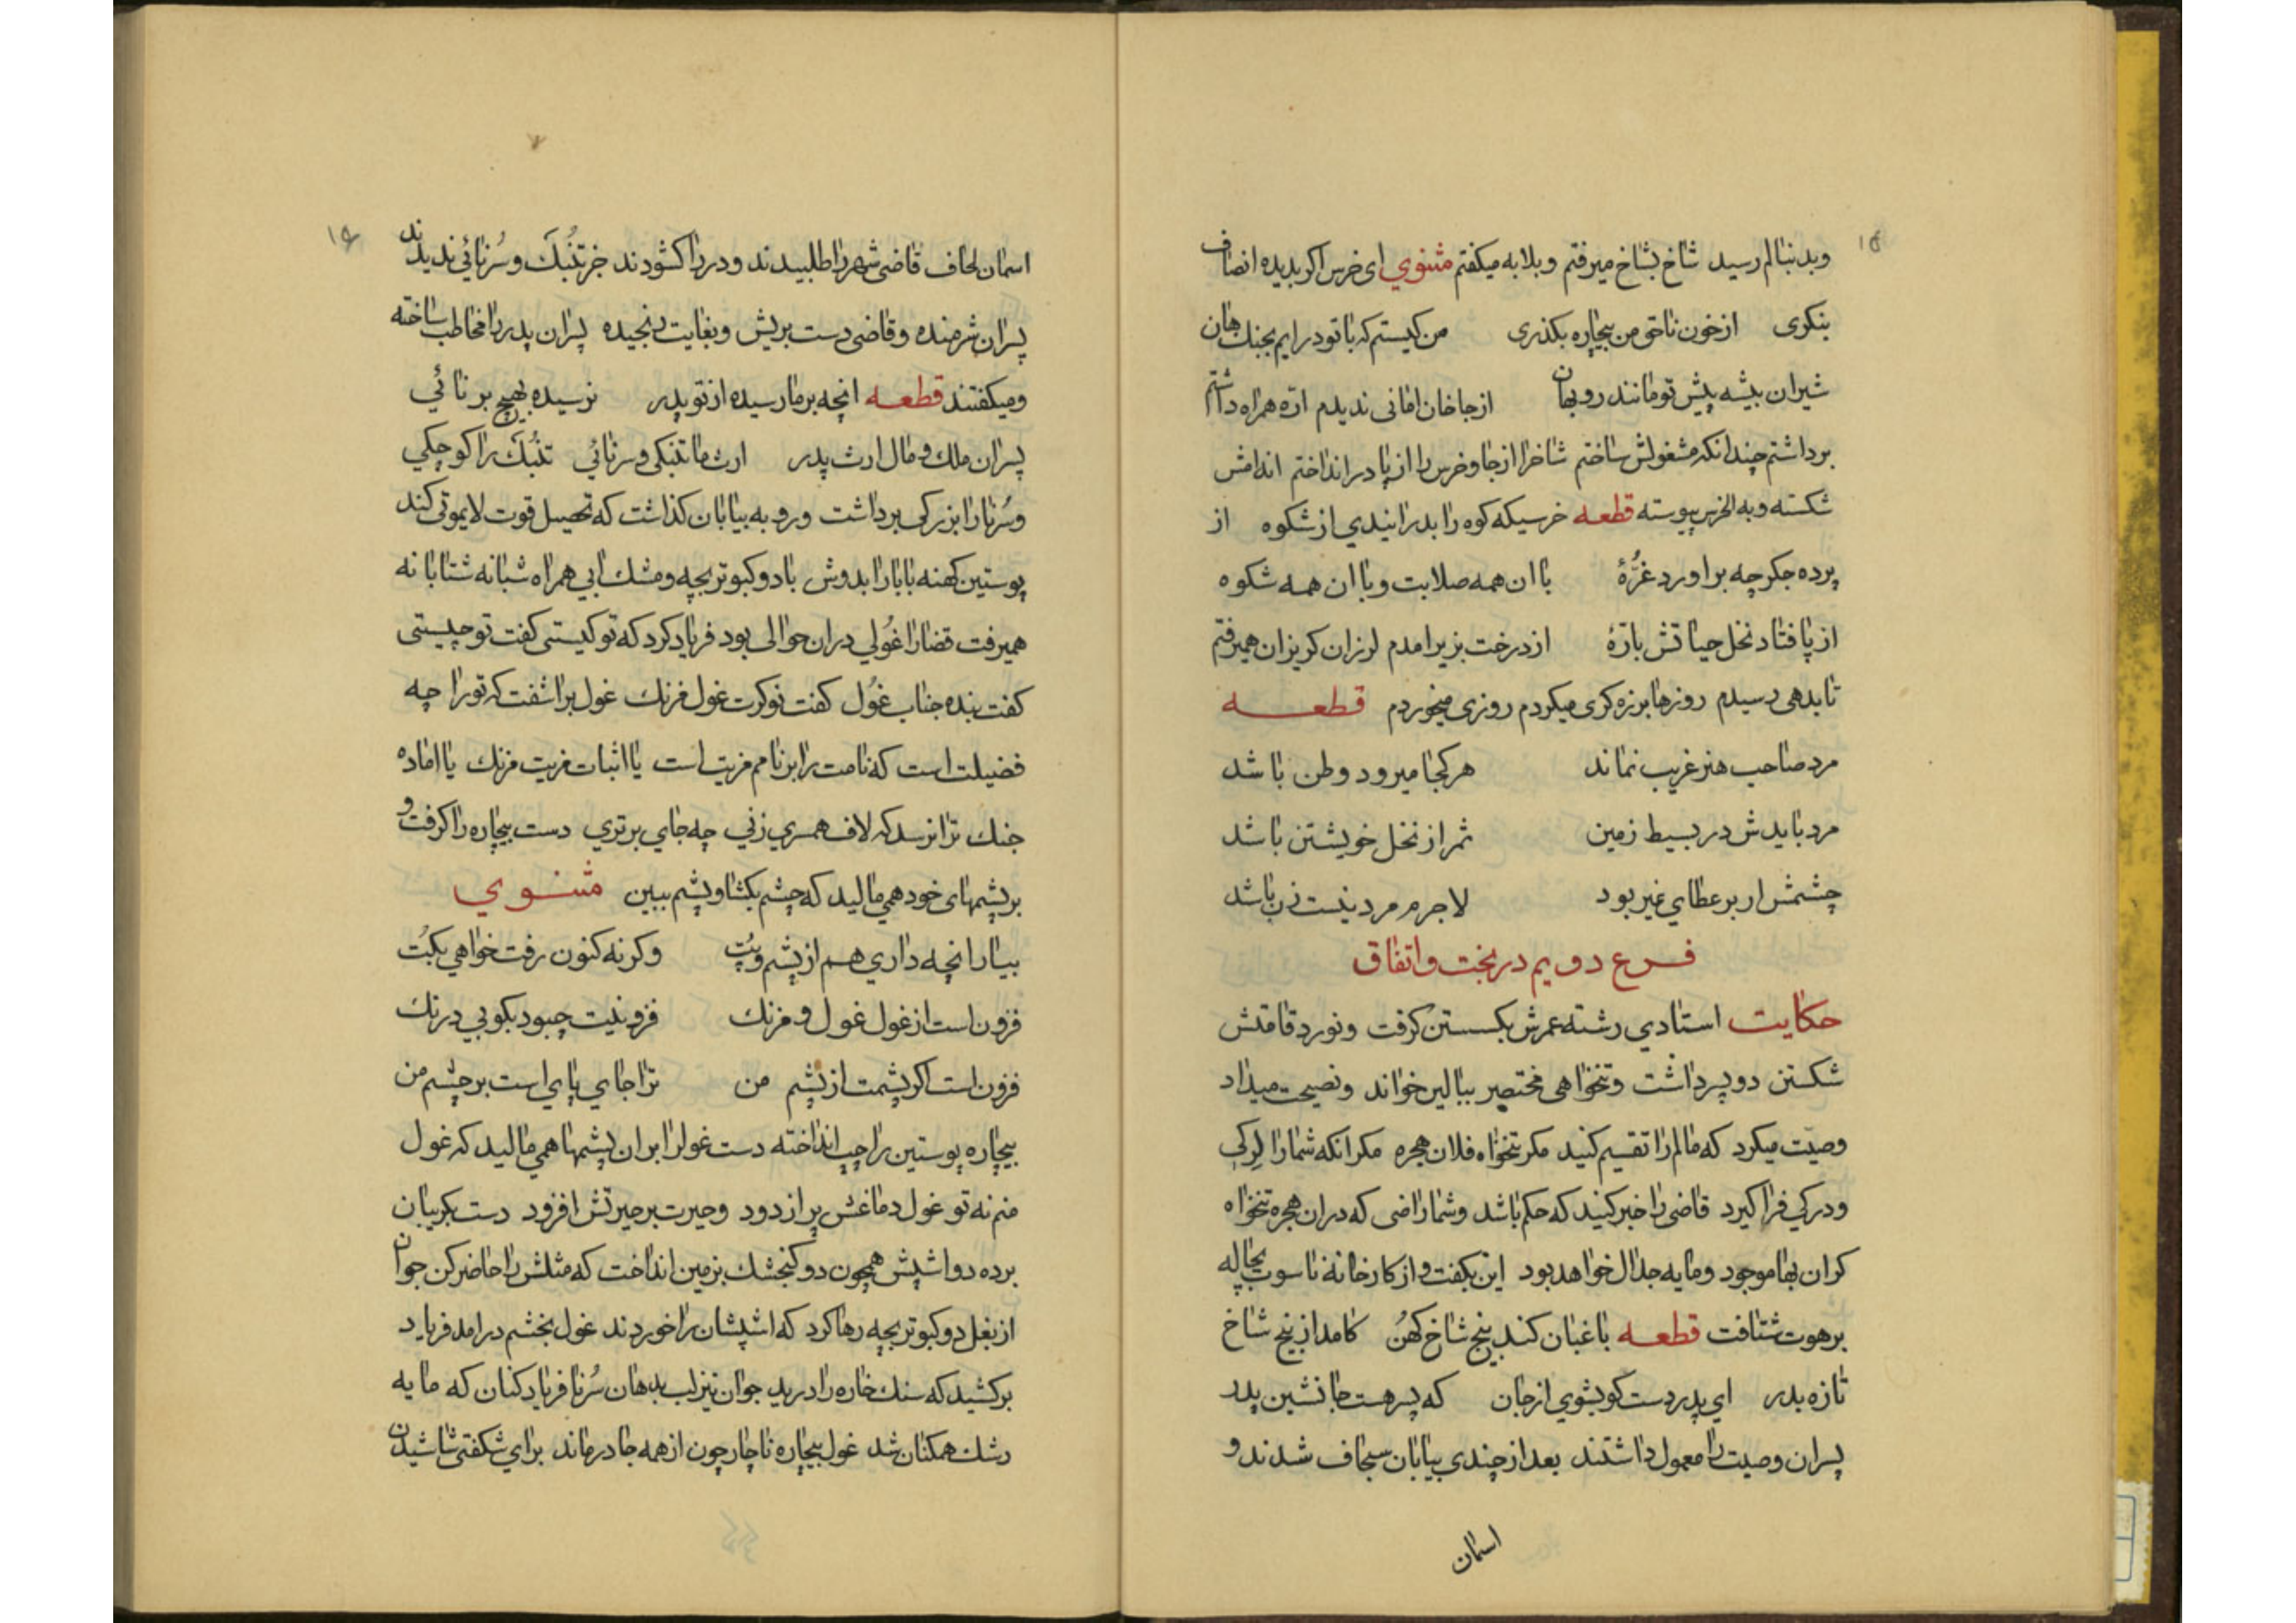 ۱۵
وبدنبالم رسید شاخ بشاخ میرفتم وبلابه میکفتم مثنوي ای خرس اکر بدیده انصاف
بنکری ازخون ناحق من بیچاره بکذری من کیستم که باتو درایم بجنك هان
شیران بیشه پیش تو مانند روبهان ازجا خان امانی ندیدم اره همراه داشتم
برداشتم چندانکه مشغولش ساختم شاخرا ازجا وخرس را از پا در انداختم اندامش
شکسته وبه الخرس پیوسته قطعه خرسیکه کوه را بدرانیدي ازشکوه از
پرده جکر چه براورد غرّۀ باان همه صلابت وباان همه شکوه
از پا فتاد نخل حیاتش بارّۀ ازدرخت بزیر امدم لرزان کریزان همیرفتم
تابدهی رسیدم روزها برزه کری میکردم روزی میخوردم قطعه
مرد صاحب هنر غریب نماند هرکجا میرود وطن باشد
مرد بایدش در بسیط زمین ثمر از نخل خویشتن باشد
چشمش ار بر عطاي غیر بود لاجرم مرد نیست زن باشد
فرع دویم در بخت واتفاق
حکایت استادي رشته عمرش بکسستن کرفت ونورد قامتش
شکستن دو پسر داشت وتنخواهی مختصر ببالین خواند ونصیحت میداد
وصیّت میکرد که مالم را تقسیم کنید مکر تنخواه فلان حجره مکر انکه شمارا لرکی
ودرکي فراکیرد قاضی را خبر کنید که حکم باشد وشما راضی که دران حجره تنخواه
کران بها موجود ومایه جدال خواهد بود این بکفت واز کارخانه ناسوت بچاله
برهوت شتافت قطعه باغبان کند بیخ شاخ کهن کامد از بیخ شاخ
تازه بدر اي پدر دست کو بشوي ازجان که پسر هست جانشین پدر
پسران وصیت را معمول داشتند بعد از چندي بیابان سجاف شدند و
اسمان
۱۶
اسمان لحاف قاضی شهر را طلبیدند ودر را کشودند جز تنبك وسرنائي ندیدند
پسران شرمنده وقاضی دست بریش وبغایت رنجیده پسران پدر را مخاطب ساخته
ومیکفتند قطعه انچه برما رسیده از تو پدر نرسیده بهیچ برنائي
پسران ملك ومال ارث پدر ارث ما تنبکی وسرنائي تنبك را کوچکي
وسرنا را بزرکي برداشت ورو به بیابان کذاشت که تحصیل قوت لایموتی کند
پوستین کهنه بابا را بدوش بادو کبوتر بچه ومشك ابي همراه شبانه شتابانه
همیرفت قضا را غولي دران حوالی بود فریاد کرد که تو کیستی کفت تو چیستی
کفت بنده جناب غول کفت نوکرت غول فزنك غول براشفت که تورا چه
فضیلت است که نامت را بر نامم مزیت است یا اثبات مزیت فزنك یا اماده
جنك ترا نرسد که لاف همسري زني چه جاي برتري دست بیچاره را کرفت و
بر پشمهاي خود همي مالید که چشم بکشا وپشم ببین مثنوي
بیار انچه داري هم از پشم وپت وکرنه کنون رفت خواهي بکت
فزون است از غول غول وفزنك فزونیت چبود بکو بي درنك
فزون است اکر پشمت از پشم من ترا جاي پاي است بر چشم من
بیچاره پوستین را چپ انداخته دست غول را بران پشمها همي مالید که غول
منم نه تو غول دماغش پر از دود وحیرت بر حیرتش افزود دست بکریبان
برده دو اشپش همچون دو کنجشك بزمین انداخت که مثلش را حاضر کن جوان
از بغل دو کبوتر بچه رها کرد که اشپشان را خوردند غول بخشم درامد فریاد
برکشید که سنك خاره را درید جوان نیز لب بدهان سرنا فریاد کنان که مایه
رشك همکنان شد غول بیچاره ناچار چون از همه جا درماند براي شکفتي شاشیدن